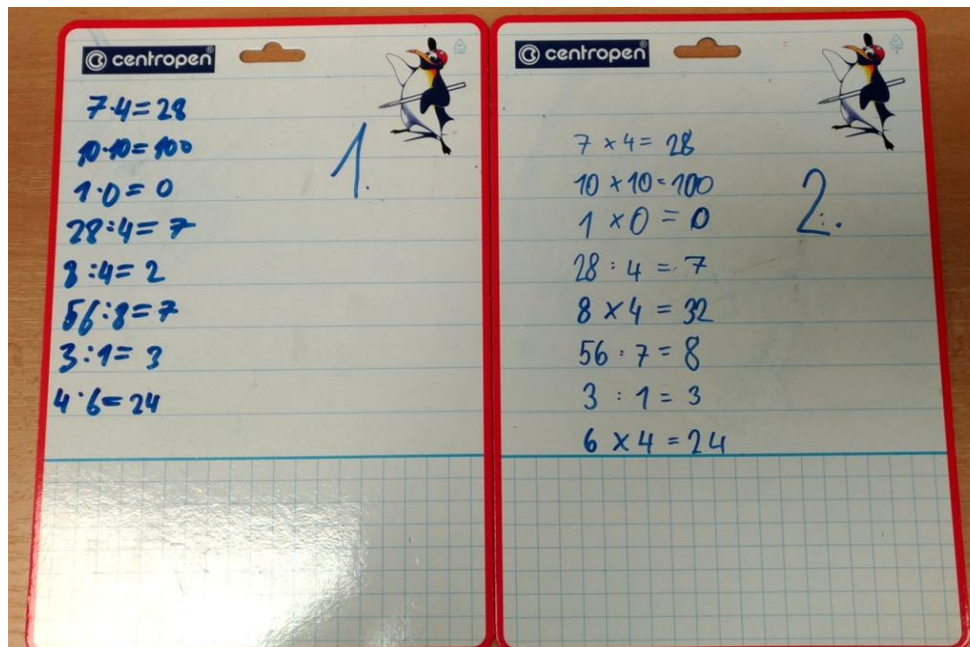 centropen®
7·4=28
10·10=100
1·0=0
28:4=7
8:4=2
56:8=7
3:1=3
4·6=24
1.
centropen®
7×4=28
10×10=100
1×0=0
28:4=7
8×4=32
56:7=8
3:1=3
6×4=24
2.